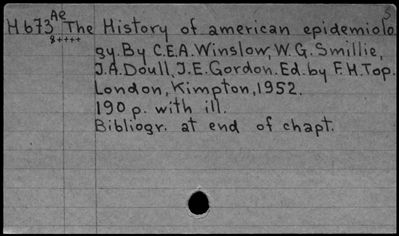 Ae S
H 673 The History of american epidemiolo
8++++ gy. By C.E.A. Winslow, W.G. Smillie,
J.A. Doull, J.E. Gordon. Ed. by F.H. Top.
London, Kimpton, 1952.
190 p. with ill.
Bibliogr. at end of chapt.